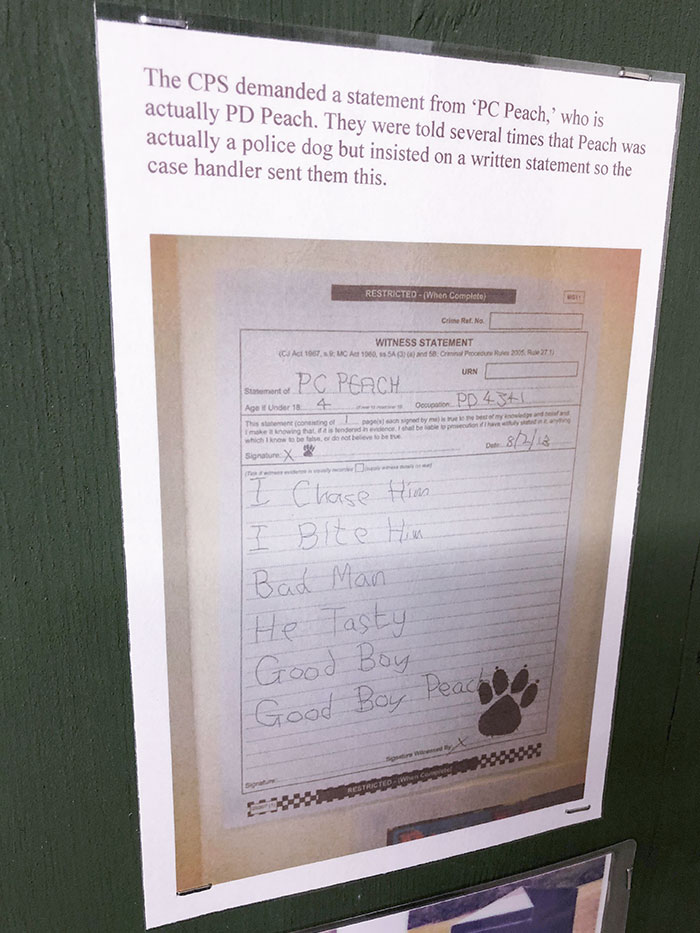 The CPS demanded a statement from ‘PC Peach,’ who is
actually PD Peach. They were told several times that Peach was
actually a police dog but insisted on a written statement so the
case handler sent them this.
RESTRICTED - (When Complete)
MG11
Crime Ref. No.
WITNESS STATEMENT
(CJ Act 1967, s.9; MC Act 1980, ss.5A (3) (a) and 5B; Criminal Procedure Rules 2005, Rule 27.1)
URN
Statement of PC PEACH
Age if Under 18 4 Occupation: PD 4341
This statement (consisting of 1 page(s) each signed by me) is true to the best of my knowledge and belief and
I make it knowing that, if it is tendered in evidence, I shall be liable to prosecution if I have wilfully stated in it, anything
which I know to be false, or do not believe to be true.
Signature: X Date: 8/2/18
I Chase Him
I Bite Him
Bad Man
He Tasty
Good Boy
Good Boy Peach
Signature: Signature Witnessed By: X
RESTRICTED - (When Complete)